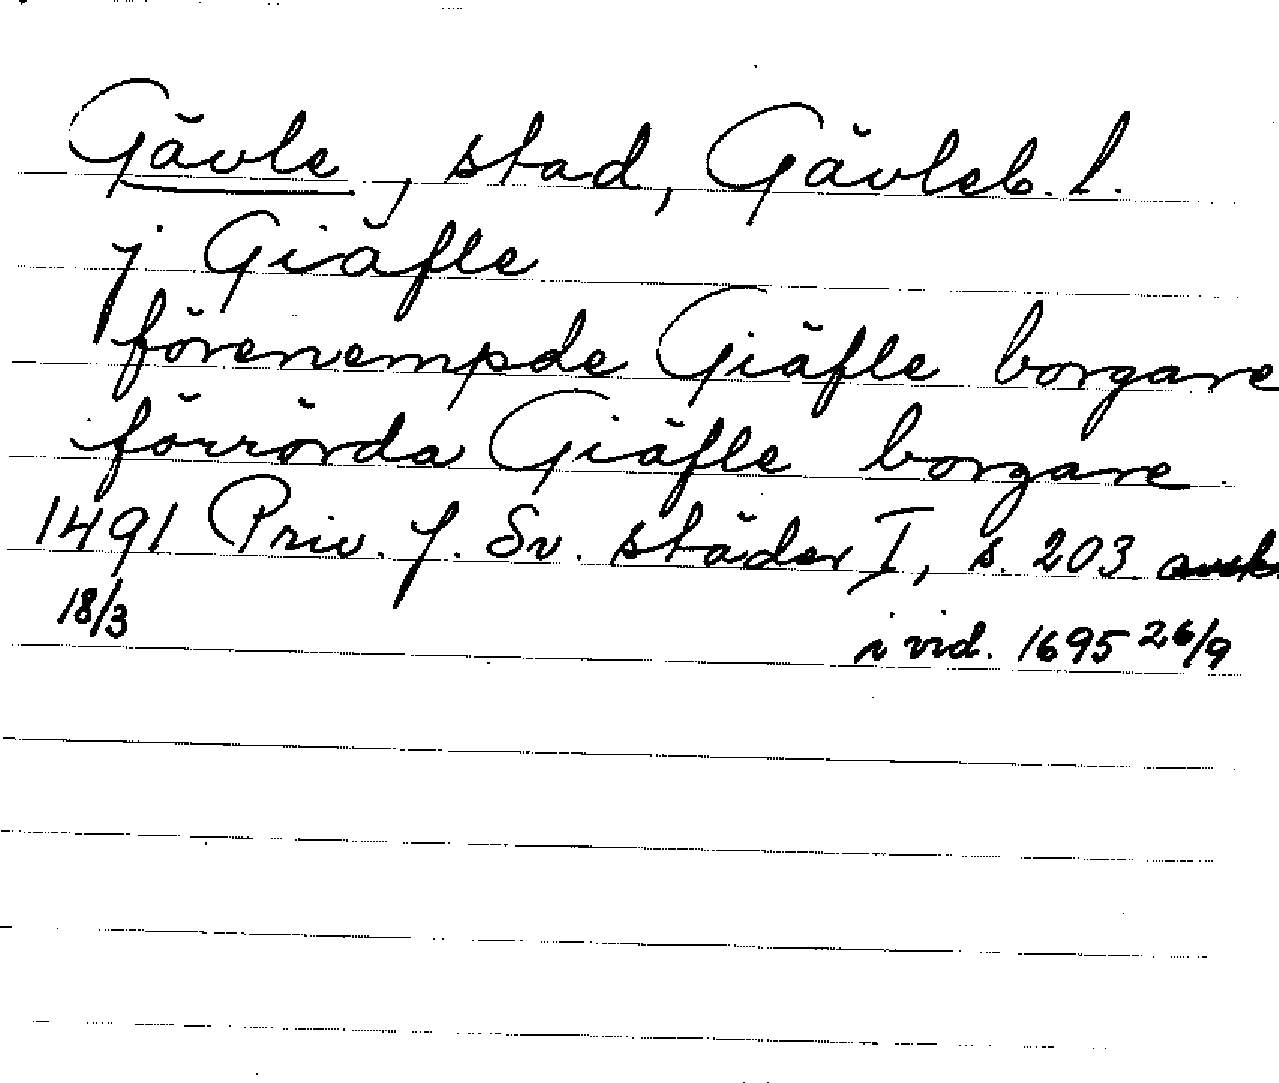 Gävle, stad, Gävleb. l.
j Giäfle
förenempde Giäfle borgare
förrörda Giäfle borgare
1491 Priv. f. Sv. städer I, s. 203 avskr
18/3
i vid. 1695 26/9